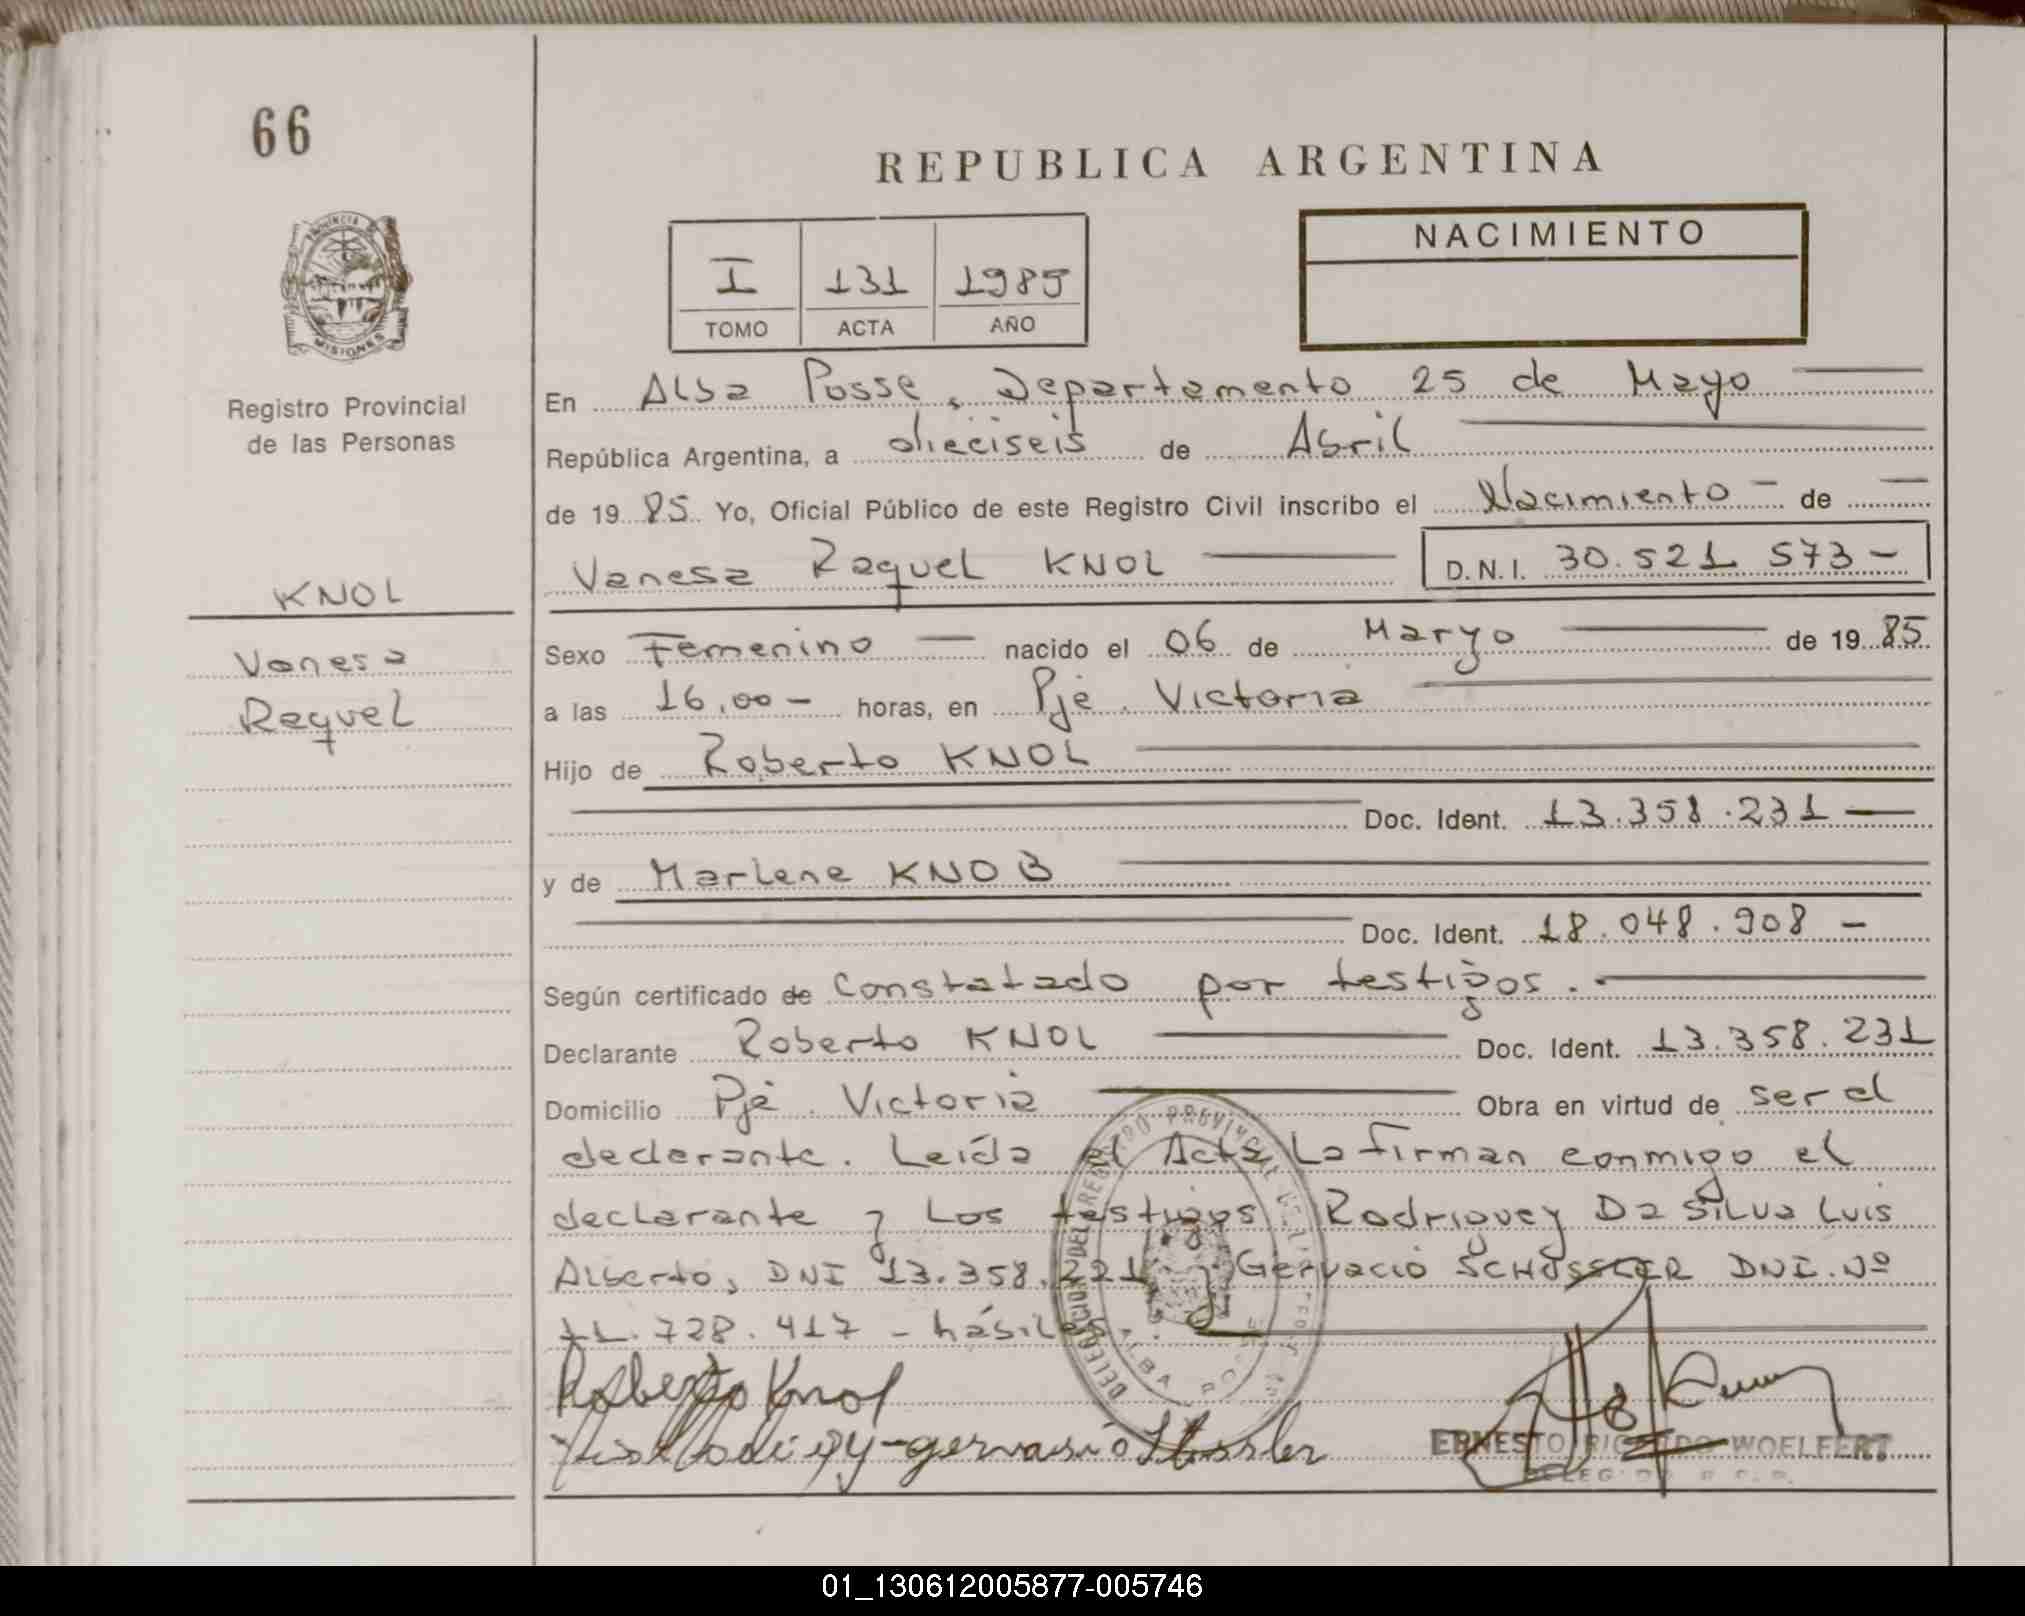 66
REPUBLICA ARGENTINA
NACIMIENTO
I 131 1985
TOMO ACTA AÑO
PROVINCIA DE
MISIONES
Registro Provincial
de las Personas
KNOL
Vanesa
Raquel
En Alba Posse, Departamento 25 de Mayo
República Argentina, a dieciseis de Abril
de 19 85 Yo, Oficial Público de este Registro Civil inscribo el Nacimiento - de
Vanesa Raquel KNOL D.N.I. 30.521 573 -
Sexo Femenino nacido el 06 de Maryo de 19 85
a las 16,00 - horas, en Pje. Victoria
Hijo de Roberto KNOL
Doc. Ident. 13.358.231
y de Marlene KNOB
Doc. Ident. 18.048.908 -
Según certificado de Constatado por testigos.
Declarante Roberto KNOL Doc. Ident. 13.358.231
Domicilio Pje. Victoria Obra en virtud de ser el
declarante. Leída el Acta La firman conmigo el
declarante y Los testigos: Rodriguey Da Silva Luis
Alberto, DNI 13.358.221 y Gervacio SCHOSSLER DNI. Nº
11.728.417 - hábiles.
Roberto Knol
gervasio
ERNESTO RICARDO WOELFERT
DELEGADO R.C.P.
DELEGACION DEL REGISTRO PROVINCIAL
ALBA POSSE
01_130612005877-005746